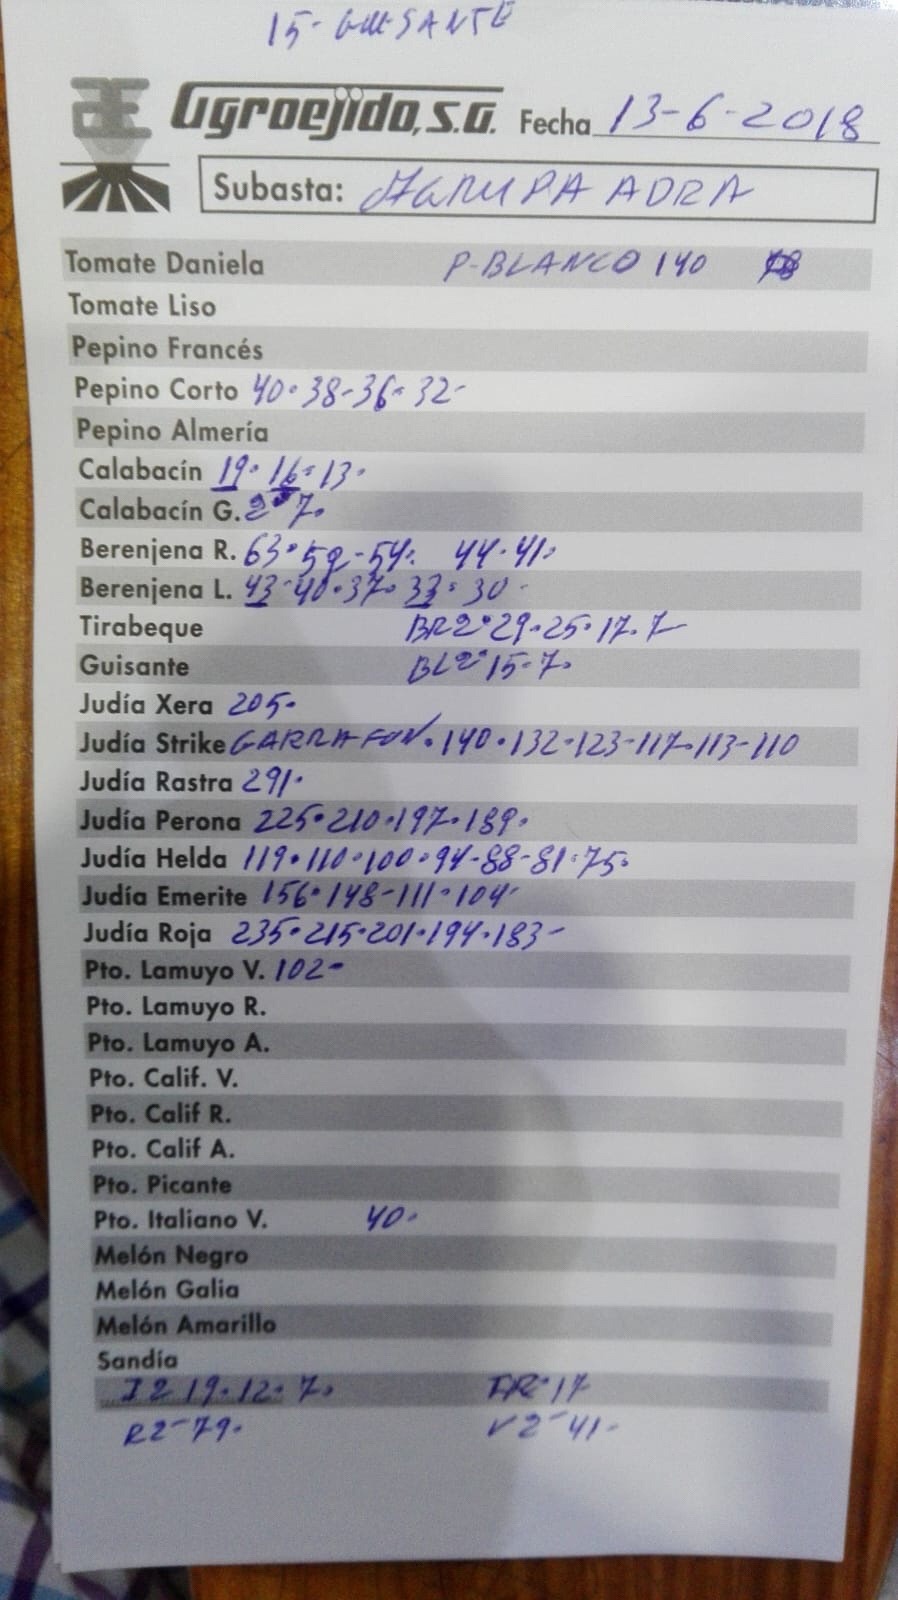 15- GUISANTE
Agroejido, S.A. Fecha 13-6-2018
Subasta: AGRUPA ADRA
Tomate Daniela P-BLANCO 140
Tomate Liso
Pepino Francés
Pepino Corto 40-38-36-32-
Pepino Almería
Calabacín 19-16-13-
Calabacín G. 2ª 7-
Berenjena R. 63-59-54- 44-41-
Berenjena L. 43-40-37-33-30-
Tirabeque BR2ª 29-25-17-7-
Guisante BL2ª 15-7-
Judía Xera 205-
Judía Strike GARRAFON-140-132-123-117-113-110
Judía Rastra 291-
Judía Perona 225-210-197-189-
Judía Helda 119-110-100-94-88-81-75-
Judía Emerite 156-148-111-104-
Judía Roja 235-215-201-194-183-
Pto. Lamuyo V. 102-
Pto. Lamuyo R.
Pto. Lamuyo A.
Pto. Calif. V.
Pto. Calif R.
Pto. Calif A.
Pto. Picante
Pto. Italiano V. 40-
Melón Negro
Melón Galia
Melón Amarillo
Sandía
I2 19-12-7- 17
R2-79- V2-41-